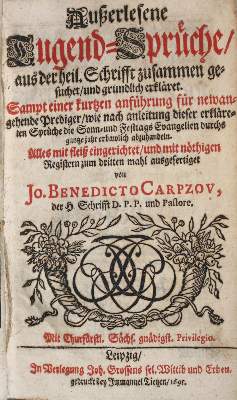 Außerlesene
Tugend=Sprüche/
aus der heil. Schrifft zusammen ge-
suchet/und gründlich erkläret.
Sampt einer kurtzen anführung für newan-
gehende Prediger/wie nach anleitung dieser erkläre-
ten Sprüche die Sonn-und Festtags Evangelien durchs
gantze jahr erbawlich abzuhandeln.
Alles mit fleiß eingerichtet/und mit nöthigen
Registern zum dritten mahl ausgefertiget
von
JO. BENEDICTO CARPZOV,
der H Schrifft D. P. P. und Pastore.
Mit Churfürstl. Sächs. gnädigst. Privilegio.
Leipzig/
In Verlegung Joh. Grossens sel. Wittib und Erben.
gedruckt bey Immanuel Tietzen/